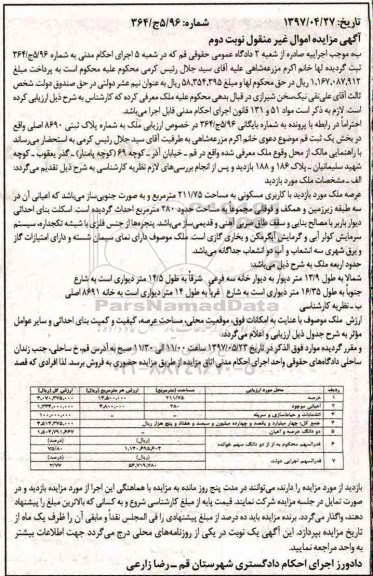 تاریخ: ۱۳۹۷/۰۴/۲۷ شماره: ۳۶۴/ج۵/۹۶
آگهی مزایده اموال غیر منقول نوبت دوم
ب موجب اجراییه صادره از شعبه ۲ دادگاه عمومی حقوقی قم که در شعبه ۵ اجرای احکام مدنی به شماره ۳۶۴/ج۵/۹۶
ثبت گردیده لها خانم اکرم مزرعه‌شاهی علیه آقای سید جلال رئیس کرمی محکوم علیه محکوم است به پرداخت مبلغ
۱,۱۶۷,۰۸۷,۹۱۲ ریال در حق محکوم لها و مبلغ ۵۸,۳۵۴,۳۹۵ ریال به عنوان نیم عشر دولتی در حق صندوق دولت. شخص
ثالث آقای علی‌نقی نیک‌سخن شیرازی در قبال بدهی محکوم علیه ملک معرفی کرده که کارشناس به شرح ذیل ارزیابی کرده
است. لازم به ذکر است مواد ۵۱ و ۱۳۱ قانون اجرای احکام مدنی قابل اجرا می‌باشد.
احتراماً در رابطه با پرونده به شماره بایگانی ۳۶۴/ج۵/۹۶ در خصوص ارزیابی ملک به شماره پلاک ثبتی ۸۶۹۰ اصلی واقع
در بخش یک ثبت قم موضوع دعوی خانم اکرم مزرعه‌شاهی به طرفیت آقای سید جلال رئیس کرمی به استحضار می‌رساند
با راهنمایی مالک از محل وقوع ملک معرفی شده واقع در قم - خیابان آذر - کوچه ۶۹ (کوچه پامنار) - گذر یعقوب - کوچه
شهید سلیمانیان - پلاک ۱۸۶ و ۱۸۸ بازدید و پس از انجام بررسی‌های لازم نظریه کارشناسی به شرح ذیل تقدیم می‌گردد:
الف - مشخصات ملک مورد بازدید
عرصه ملک مورد بازدید با کاربری مسکونی به مساحت ۲۱۱/۷۵ مترمربع و به صورت جنوبی‌ساز می‌باشد که اعیانی آن در
سه طبقه زیرزمین و همکف و فوقانی مجموعاً به مساحت حدود ۲۸۰ مترمربع احداث گردیده است. اسکلت بنای احداثی
دیوار باربر با مصالح بنایی و سقف طاق ضربی آهنی و قدیمی‌ساز می‌باشد. پنجره‌ها از جنس فلزی با شیشه تکجداره، سیستم
سرمایش کولر آبی و گرمایش آبگرمکن و بخاری گازی است. ملک موصوف دارای نمای سیمان شسته و دارای امتیازات گاز
و برق شهری سه انشعاب و آب دو انشعاب جداگانه می‌باشد.
حدود اربعه ملک به شرح ذیل می‌باشد:
شمالا به طول ۱۳/۹ متر دیوار به دیوار خانه سه فرعی شرقاً به طول ۱۴/۵ متر دیواری است به شارع
جنوباً به طول ۱۶/۳۵ متر دیواری است به شارع غرباً به طول ۱۴ متر دیواری است به خانه ۸۶۹۱ اصلی
ب - نظریه کارشناسی
ارزش ملک موصوف با عنایت به امکانات فوق، موقعیت محلی، مساحت عرصه، کیفیت و کمیت بنای احداثی و سایر عوامل
مؤثر به شرح جدول ذیل ارزیابی و اعلام می‌گردد:
و مقرر گردیده موارد فوق الذکر در تاریخ ۱۳۹۷/۰۵/۲۳ ساعت ۱۱/۰۰ الی ۱۱/۳۰ صبح به آدرس قم، خ ساحلی، جنب زندان
ساحلی دادگاه‌های حقوقی واحد اجرای احکام مدنی اتاق مزایده از طریق مزایده حضوری به فروش برسد. لذا افرادی که قصد
ردیف محل مورد ارزیابی مساحت (مترمربع) ارزش هر مترمربع (ریال) ارزش کل (ریال)
۱ عرصه ۲۱۱/۷۵ ۱۴,۵۰۰,۰۰۰ ۳,۰۷۰,۳۷۵,۰۰۰
۲ اعیانی موجود ۲۸۰ ۴,۸۰۰,۰۰۰ ۱,۳۴۴,۰۰۰,۰۰۰
۳ انشعابات و حیاط‌سازی و سرویله - - ۱۰۰,۰۰۰,۰۰۰
۴ جمع کل: چهار میلیارد و پانصد و چهارده میلیون و سیصد و هفتاد و پنج هزار ریال ۴,۵۱۴,۳۷۵,۰۰۰
۵ دو دانگ عرصه و اعیان ۱,۵۰۴,۷۹۱,۶۶۷
۶ قدرالسهم محکوم به از دو دانگ سهم خوانده (ریال) (درصد)
۷ قدرالسهم اجرایی دولت (ریال) (درصد)
بازدید از مورد مزایده را دارند، می‌توانند در مدت پنج روز مانده به مزایده با هماهنگی این اجرا از مورد مزایده بازدید و در
صورت تمایل در جلسه مزایده شرکت نمایند. قیمت پایه از مبلغ کارشناسی شروع و به کسانی که بالاترین مبلغ را پیشنهاد
دهند، واگذار می‌گردد. برنده مزایده باید ده درصد از مبلغ پیشنهادی را فی المجلس نقداً و مابقی آن را ظرف یک ماه از
تاریخ مزایده بپردازد. این آگهی یک نوبت در یکی از روزنامه‌های محلی درج می‌گردد جهت اطلاعات بیشتر
به واحد مراجعه نمایید.
دادورز اجرای احکام دادگستری شهرستان قم - رضا زارعی